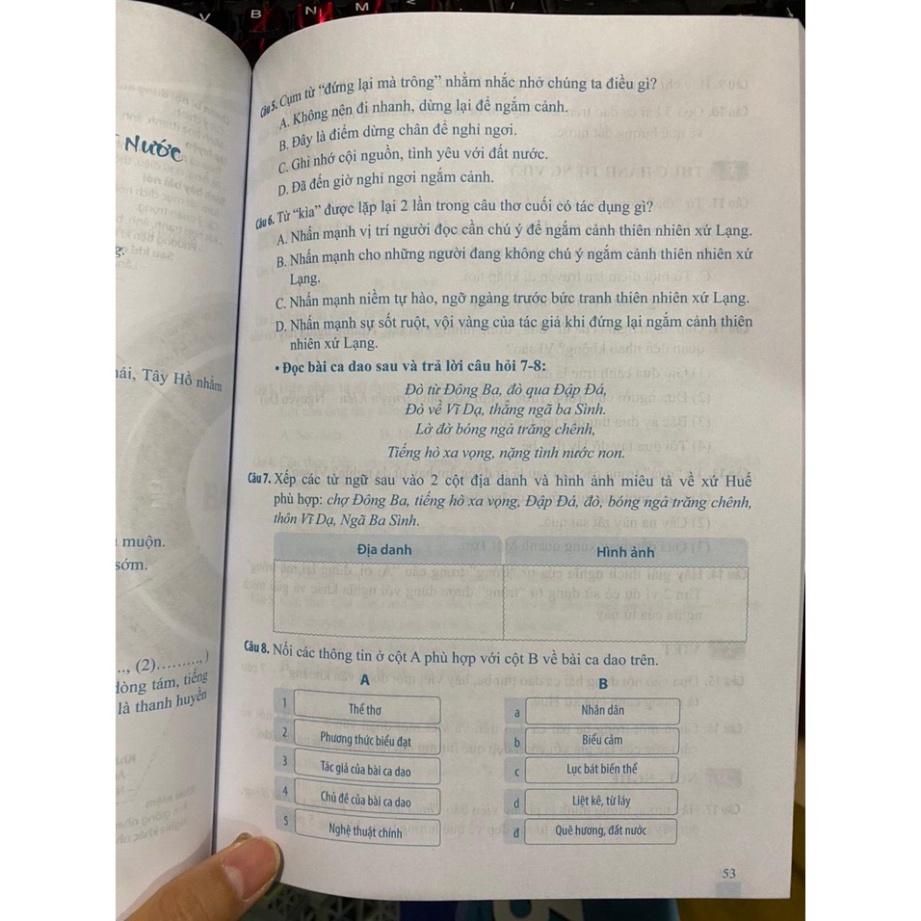 V B N M
Nước
g.
hái, Tây Hồ nhằm
muộn.
sớm.
.., (2)..........)
dòng tám, tiếng
là thanh huyền
Câu 5. Cụm từ “đứng lại mà trông” nhằm nhắc nhở chúng ta điều gì?
A. Không nên đi nhanh, dừng lại để ngắm cảnh.
B. Đây là điểm dừng chân để nghỉ ngơi.
C. Ghi nhớ cội nguồn, tình yêu với đất nước.
D. Đã đến giờ nghỉ ngơi ngắm cảnh.
Câu 6. Từ “kìa” được lặp lại 2 lần trong câu thơ cuối có tác dụng gì?
A. Nhấn mạnh vị trí người đọc cần chú ý để ngắm cảnh thiên nhiên xứ Lạng.
B. Nhấn mạnh cho những người đang không chú ý ngắm cảnh thiên nhiên xứ
Lạng.
C. Nhấn mạnh niềm tự hào, ngỡ ngàng trước bức tranh thiên nhiên xứ Lạng.
D. Nhấn mạnh sự sốt ruột, vội vàng của tác giả khi đứng lại ngắm cảnh thiên
nhiên xứ Lạng.
• Đọc bài ca dao sau và trả lời câu hỏi 7-8:
Đò từ Đông Ba, đò qua Đập Đá,
Đò về Vĩ Dạ, thẳng ngã ba Sình.
Lờ đờ bóng ngả trăng chênh,
Tiếng hò xa vọng, nặng tình nước non.
Câu 7. Xếp các từ ngữ sau vào 2 cột địa danh và hình ảnh miêu tả về xứ Huế
phù hợp: chợ Đông Ba, tiếng hò xa vọng, Đập Đá, đò, bóng ngả trăng chênh,
thôn Vĩ Dạ, Ngã Ba Sình.
Địa danh Hình ảnh
Câu 8. Nối các thông tin ở cột A phù hợp với cột B về bài ca dao trên.
A B
1 Thể thơ a Nhân dân
2 Phương thức biểu đạt b Biểu cảm
3 Tác giả của bài ca dao c Lục bát biến thể
4 Chủ đề của bài ca dao d Liệt kê, từ láy
5 Nghệ thuật chính đ Quê hương, đất nước
53